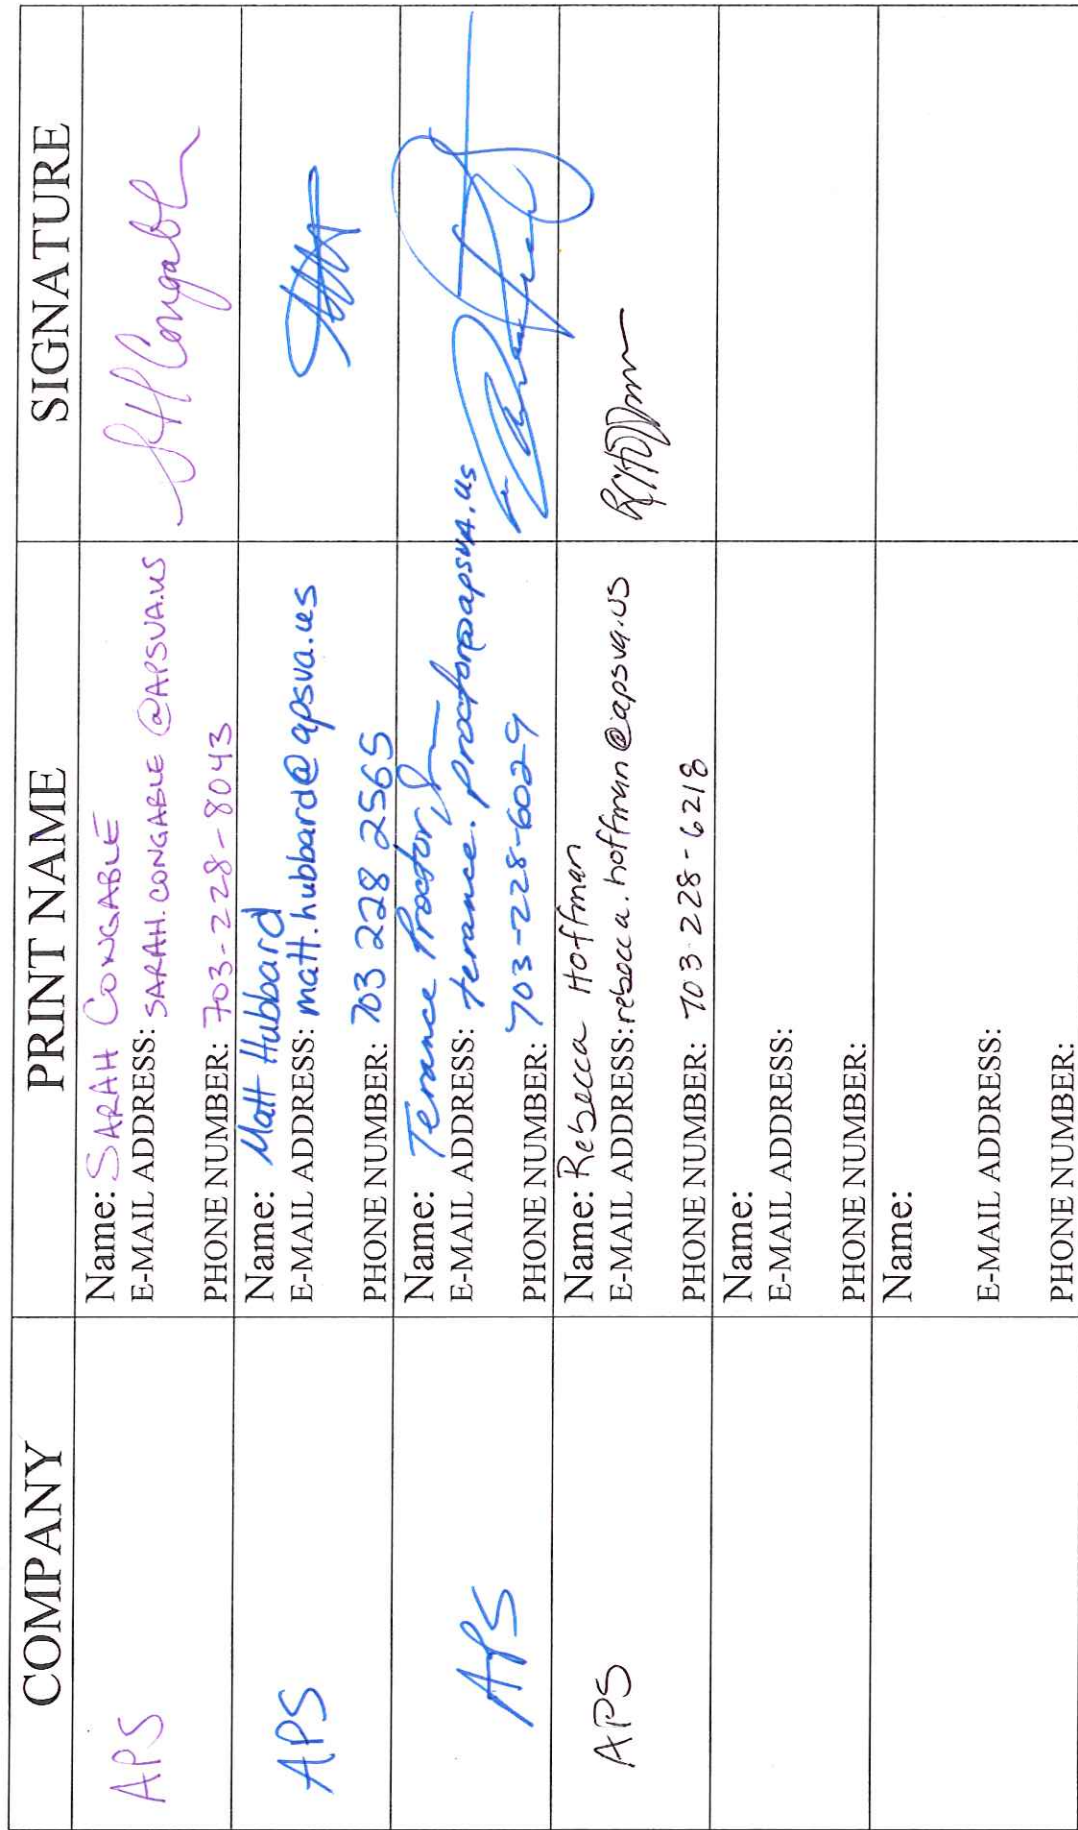 COMPANY PRINT NAME SIGNATURE
APS
Name: SARAH CONGABLE
E-MAIL ADDRESS: SARAH.CONGABLE@APSVA.US
PHONE NUMBER: 703-228-8043
SHCongable
APS
Name: Matt Hubbard
E-MAIL ADDRESS: matt.hubbard@apsva.us
PHONE NUMBER: 703 228 2565
APS
Name: Terance Proctor Jr
E-MAIL ADDRESS: terance.proctor@apsva.us
PHONE NUMBER: 703-228-6029
APS
Name: Rebecca Hoffman
E-MAIL ADDRESS: rebecca.hoffman@apsva.us
PHONE NUMBER: 703-228-6218
Name:
E-MAIL ADDRESS:
PHONE NUMBER:
Name:
E-MAIL ADDRESS:
PHONE NUMBER: